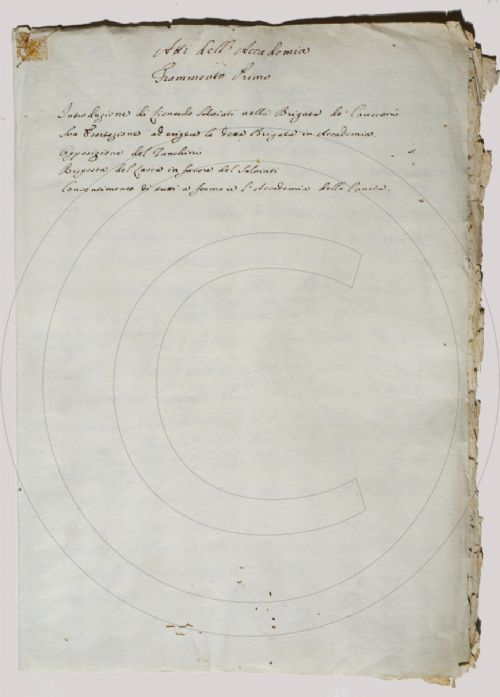 Atti dell'Accademia
Frammento Primo
Introduzione di Lionardo Salviati nella Brigata de' Crusconi
Sua Esortazione ad erigere la detta Brigata in Accademia
Opposizione del Zanchini
Risposta del Lasca in favore del Salviati
Consentimento di tutti a formare l'Accademia della Crusca.